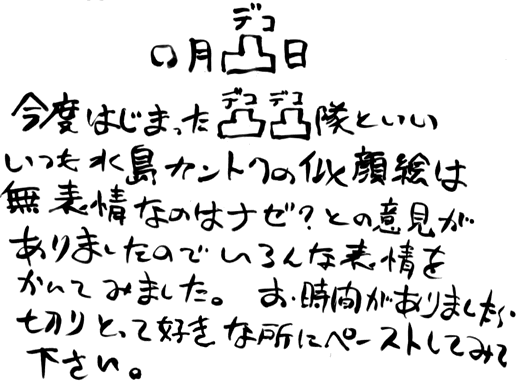 デコ
〇月凸日
デコデコ
今度はじまった凸凸隊といい
いつも水島カントクの似顔絵は
無表情なのはナゼ?との意見が
ありましたのでいろんな表情を
かいてみました。お時間がありましたら
切りとって好きな所にペーストしてみて
下さい。